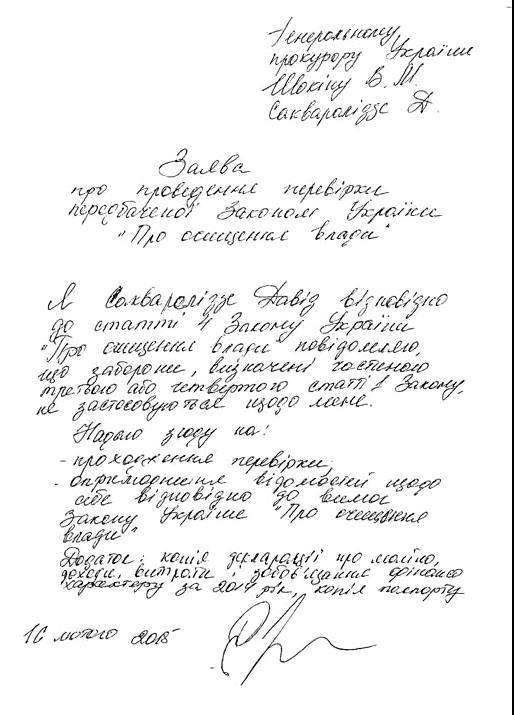 Генеральному
прокурору України
Шокіну В. М.
Сакварелідзе Д.
Заява
про проведення перевірки
передбаченої Законом України
"Про очищення влади"
Я Сакварелідзе Давід відповідно
до статті 4 Закону України
"Про очищення влади" повідомляю,
що заборони, визначені частиною
третьою або четвертою статті 1 Закону,
не застосовуються щодо мене.
Надаю згоду на:
- проходження перевірки;
- оприлюднення відомостей щодо
себе відповідно до вимог
Закону України "Про очищення
влади"
Додаток: копія декларації про майно,
доходи, витрати і зобов'язання фінансо
характеру за 2014 рік, копія паспорту
16 лютого 2015